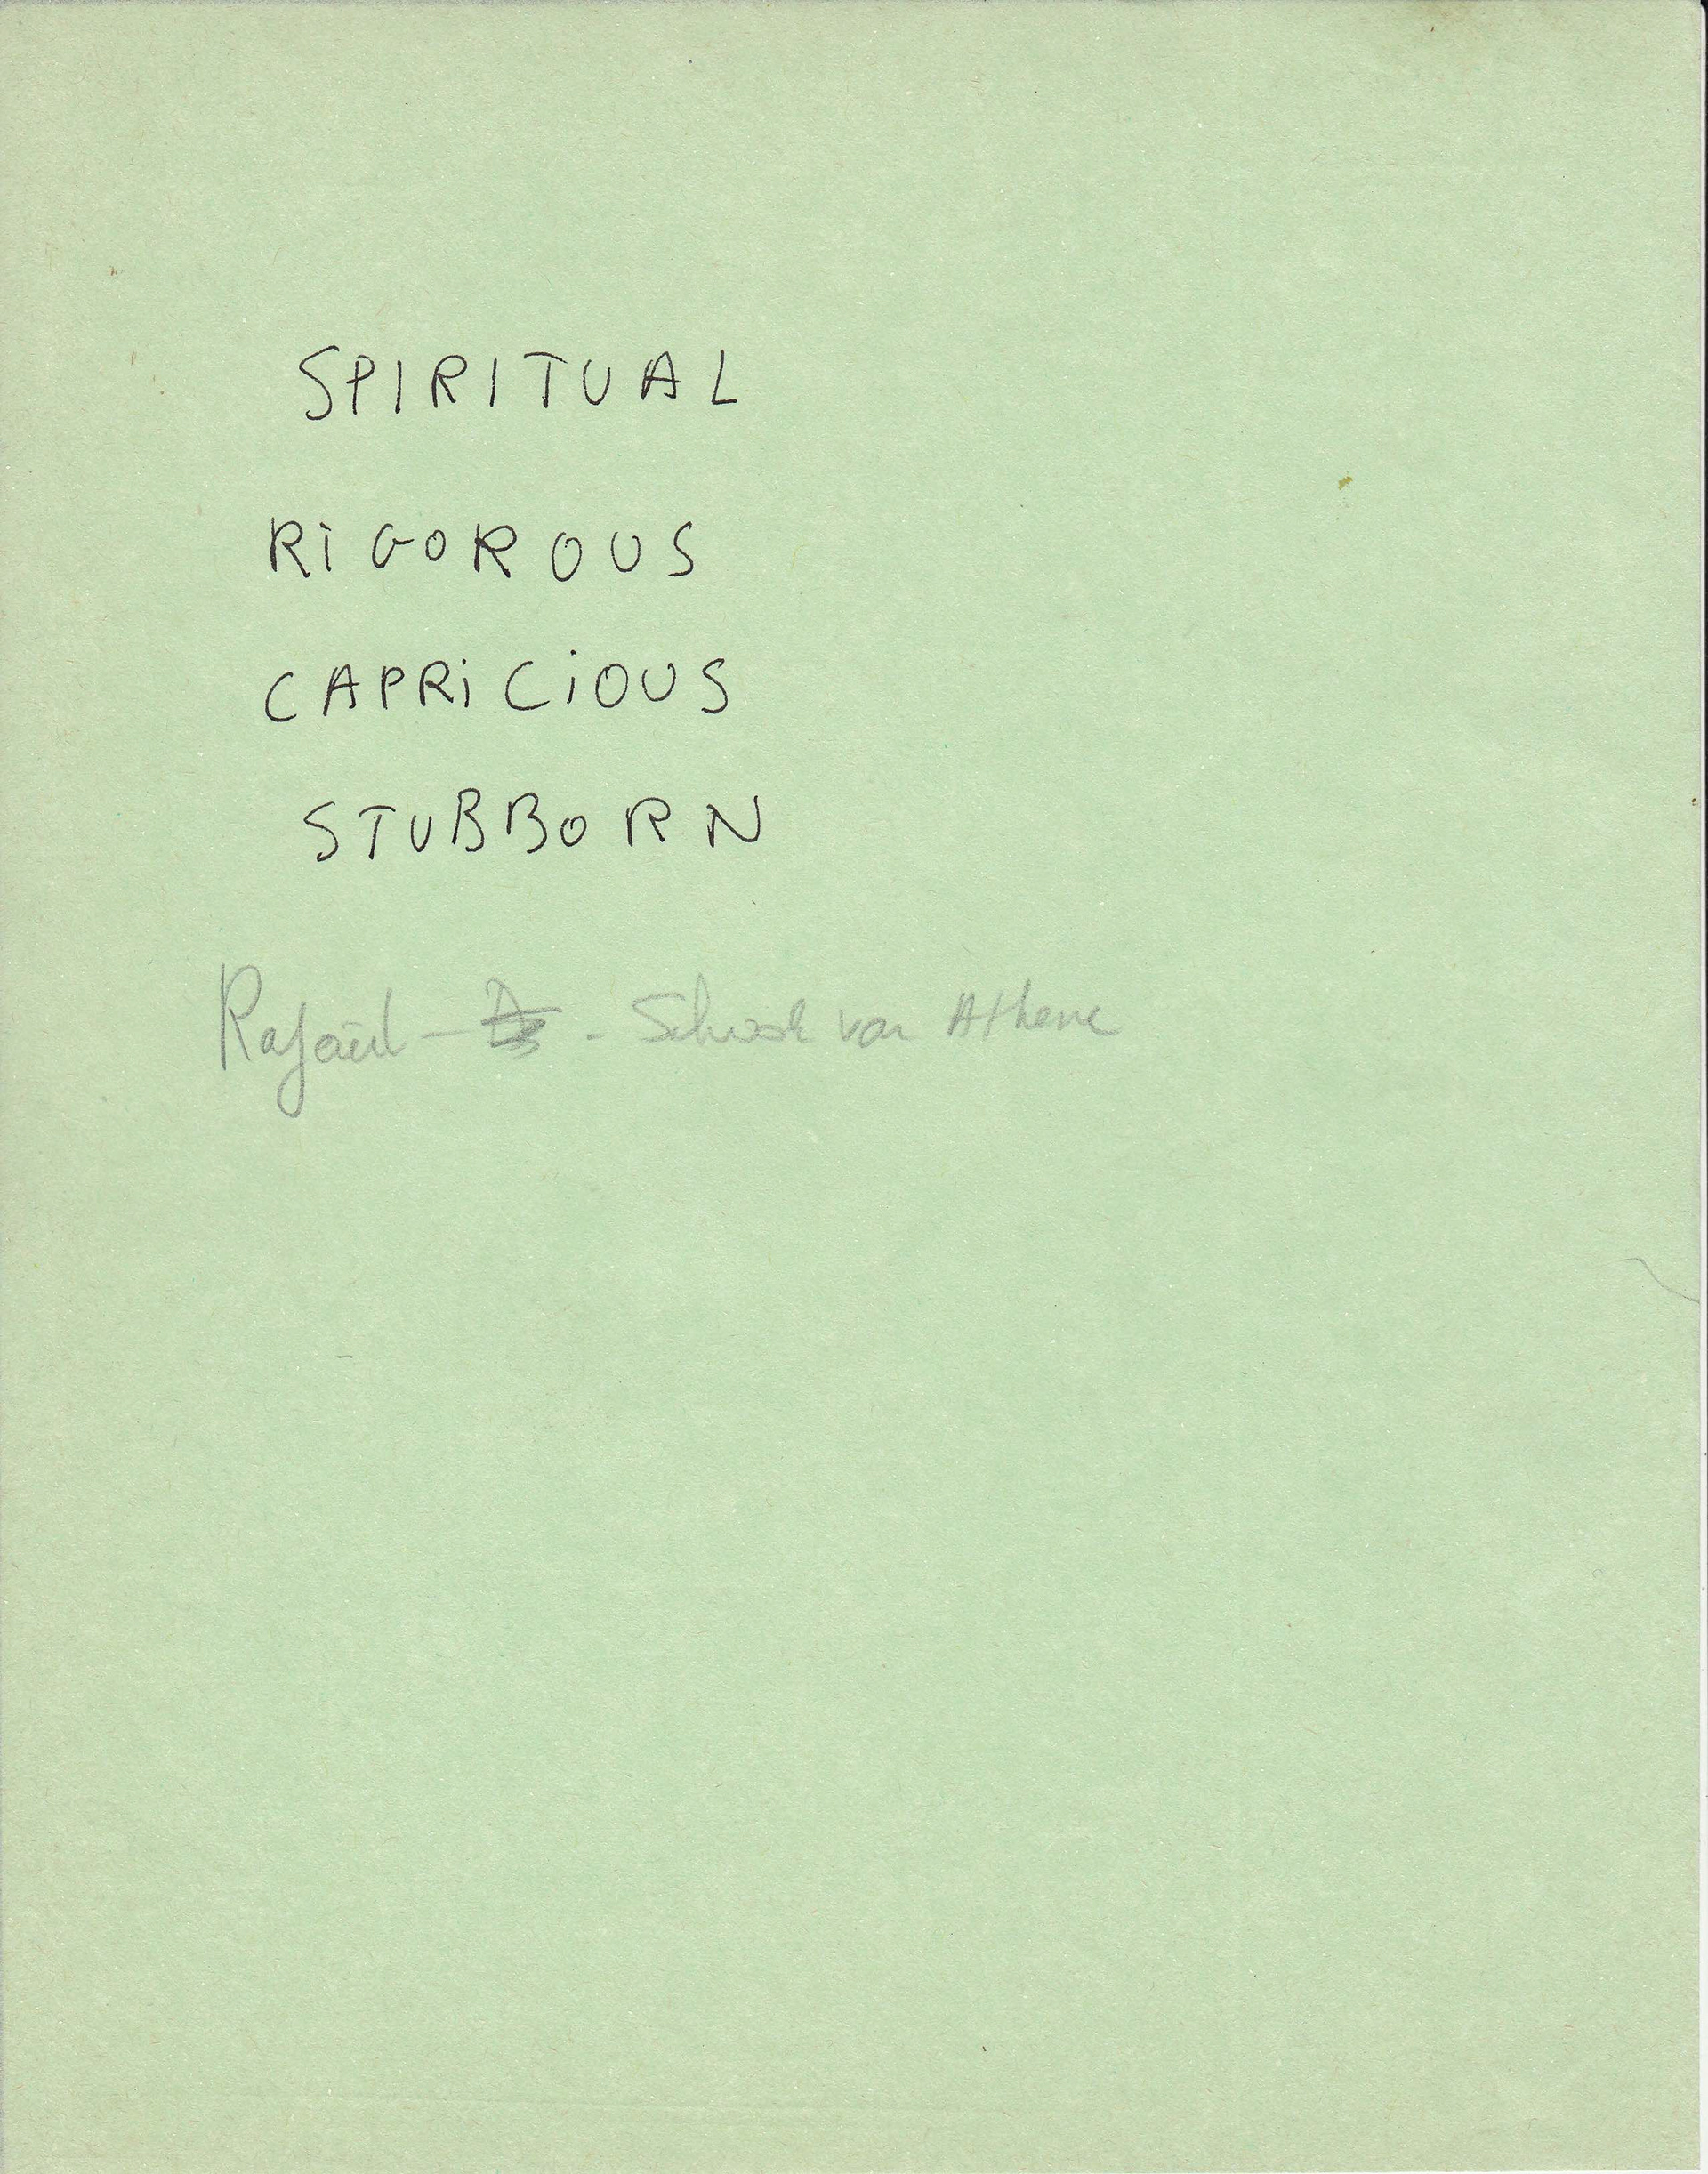 SPIRITUAL
RiGoROUS
CAPRiCiOUS
STUBBORN
Rafaël - - School van Athene